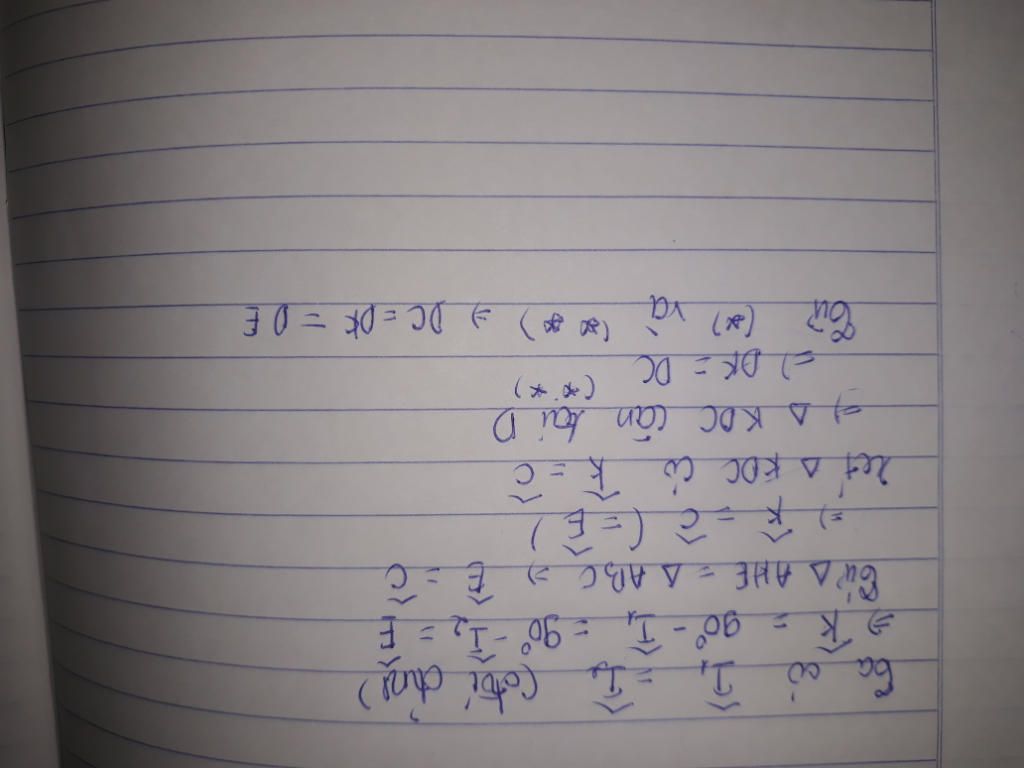 Ta có Î₁ = Î₂ (đối đỉnh)
⇒ K̂ = 90° - Î₁ = 90° - Î₂ = Ê
Từ Δ AHE = Δ ABC ⇒ Ê = Ĉ
⇒ K̂ = Ĉ (= Ê)
Xét Δ KDC có K̂ = Ĉ
⇒ Δ KDC cân tại D
⇒ DK = DC (**)
Từ (*) và (**) ⇒ DC = DK = DE